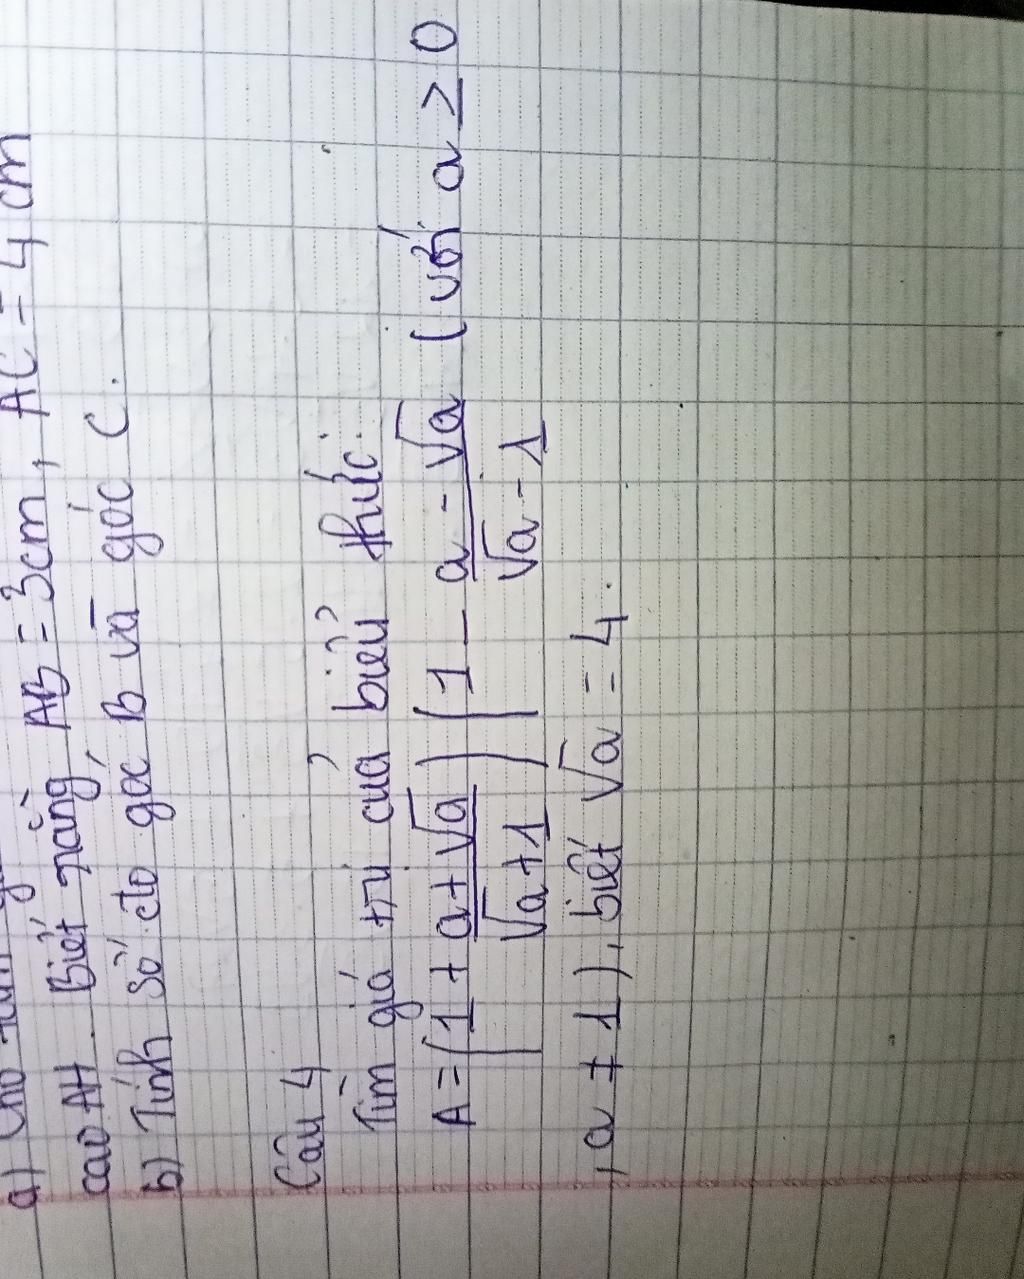 a) Cho tam
cao AH. Biết rằng, AB = 3cm, AC = 4cm
b) Tính số đo góc B và góc C.
Câu 4
Tìm giá trị của biểu thức:
A = (1 + (a + √a)/(√a + 1)) (1 - (a - √a)/(√a - 1) (với a ≥ 0
, a ≠ 1), biết √a = 4.